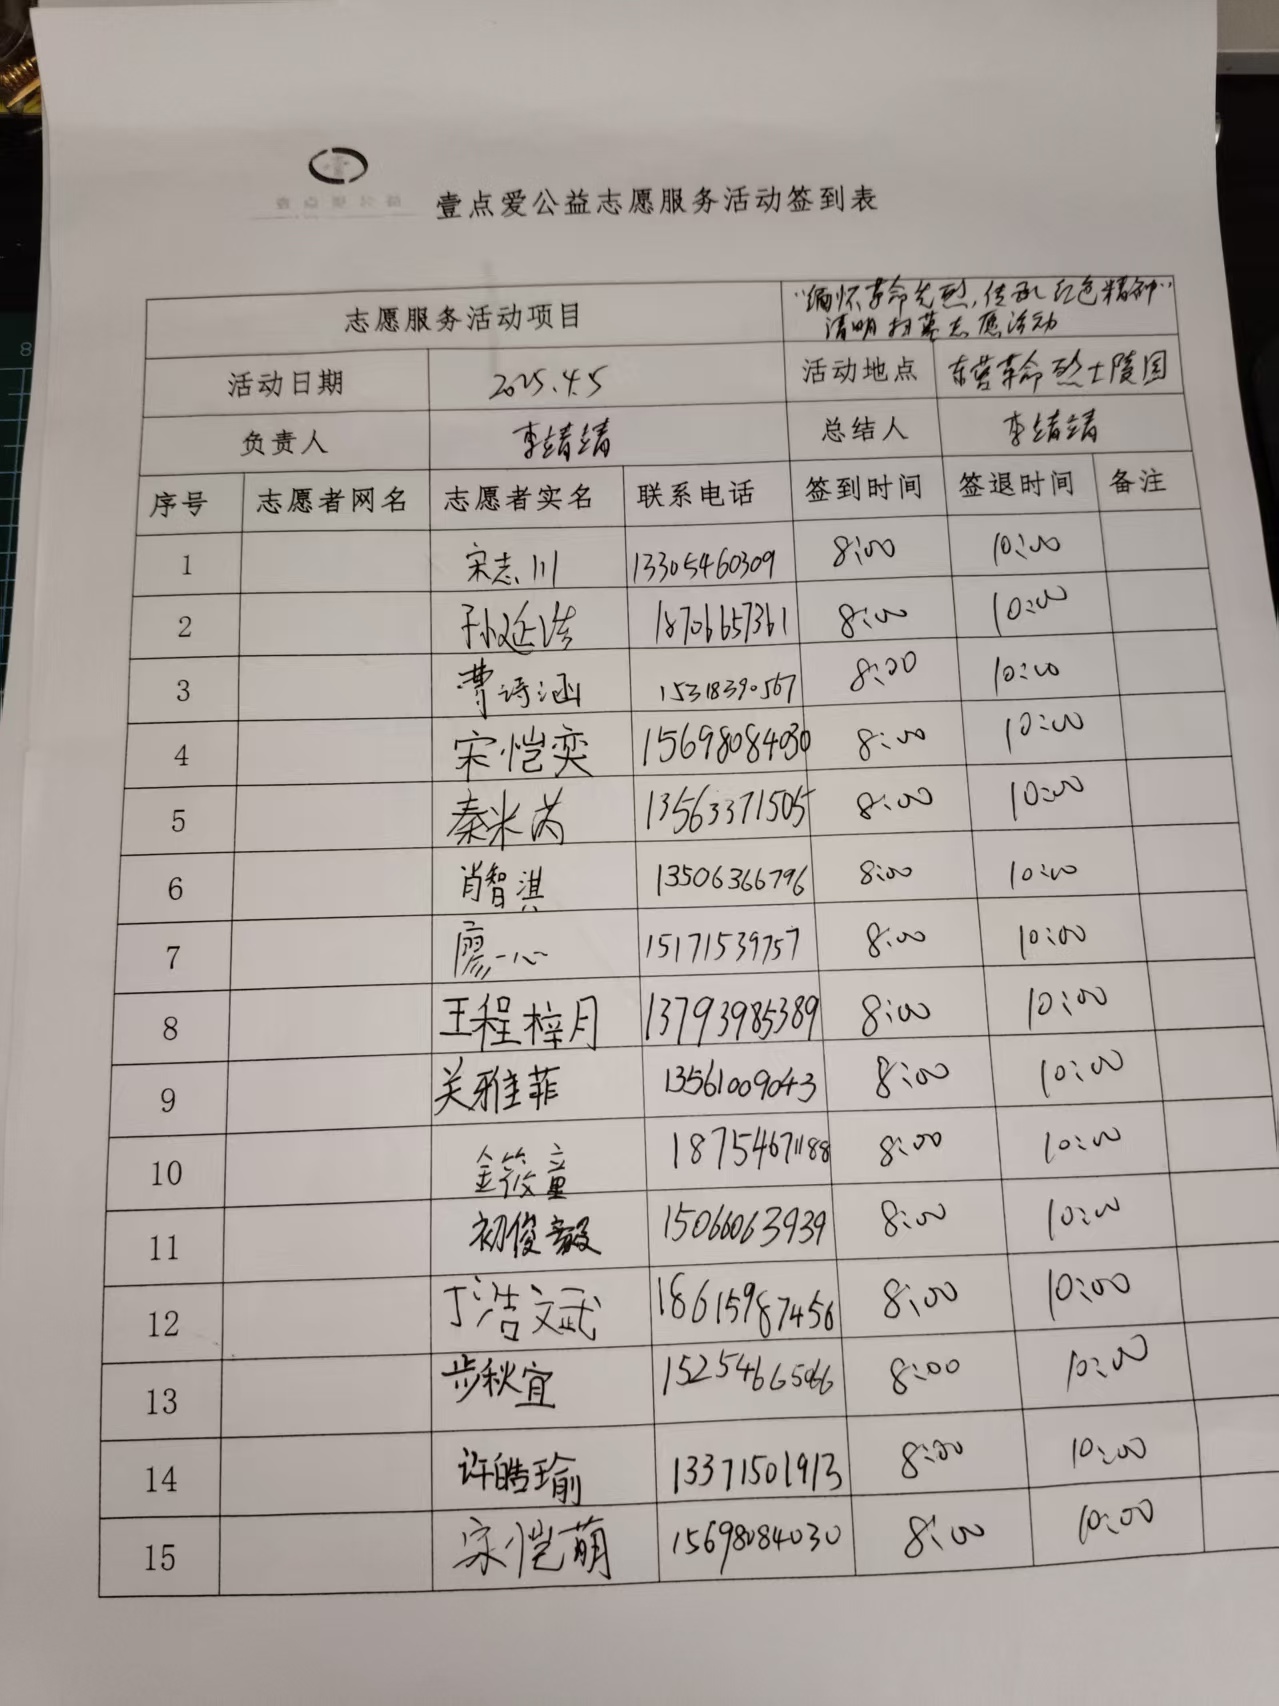 壹点爱公益志愿服务活动签到表
志愿服务活动项目 “缅怀革命先烈，传承红色精神”
清明扫墓志愿活动
活动日期 2025.4.5 活动地点 东营革命烈士陵园
负责人 李婧靖 总结人 李婧靖
序号 志愿者网名 志愿者实名 联系电话 签到时间 签退时间 备注
1 宋志川 13305460309 8:00 10:00
2 孙延浩 18706657361 8:00 10:00
3 曹诗涵 15318390567 8:00 10:00
4 宋恺奕 15698084030 8:00 10:00
5 秦米芮 13563371505 8:00 10:00
6 肖智淇 13506366796 8:00 10:00
7 廖一心 15171539757 8:00 10:00
8 王程梓月 13793985389 8:00 10:00
9 关雅菲 13561009043 8:00 10:00
10 金筱童 18754671188 8:00 10:00
11 初俊毅 15066063939 8:00 10:00
12 丁浩文武 18615987456 8:00 10:00
13 步秋宜 15254665066 8:00 10:00
14 许皓瑜 13371501913 8:00 10:00
15 宋恺萌 15698084030 8:00 10:00